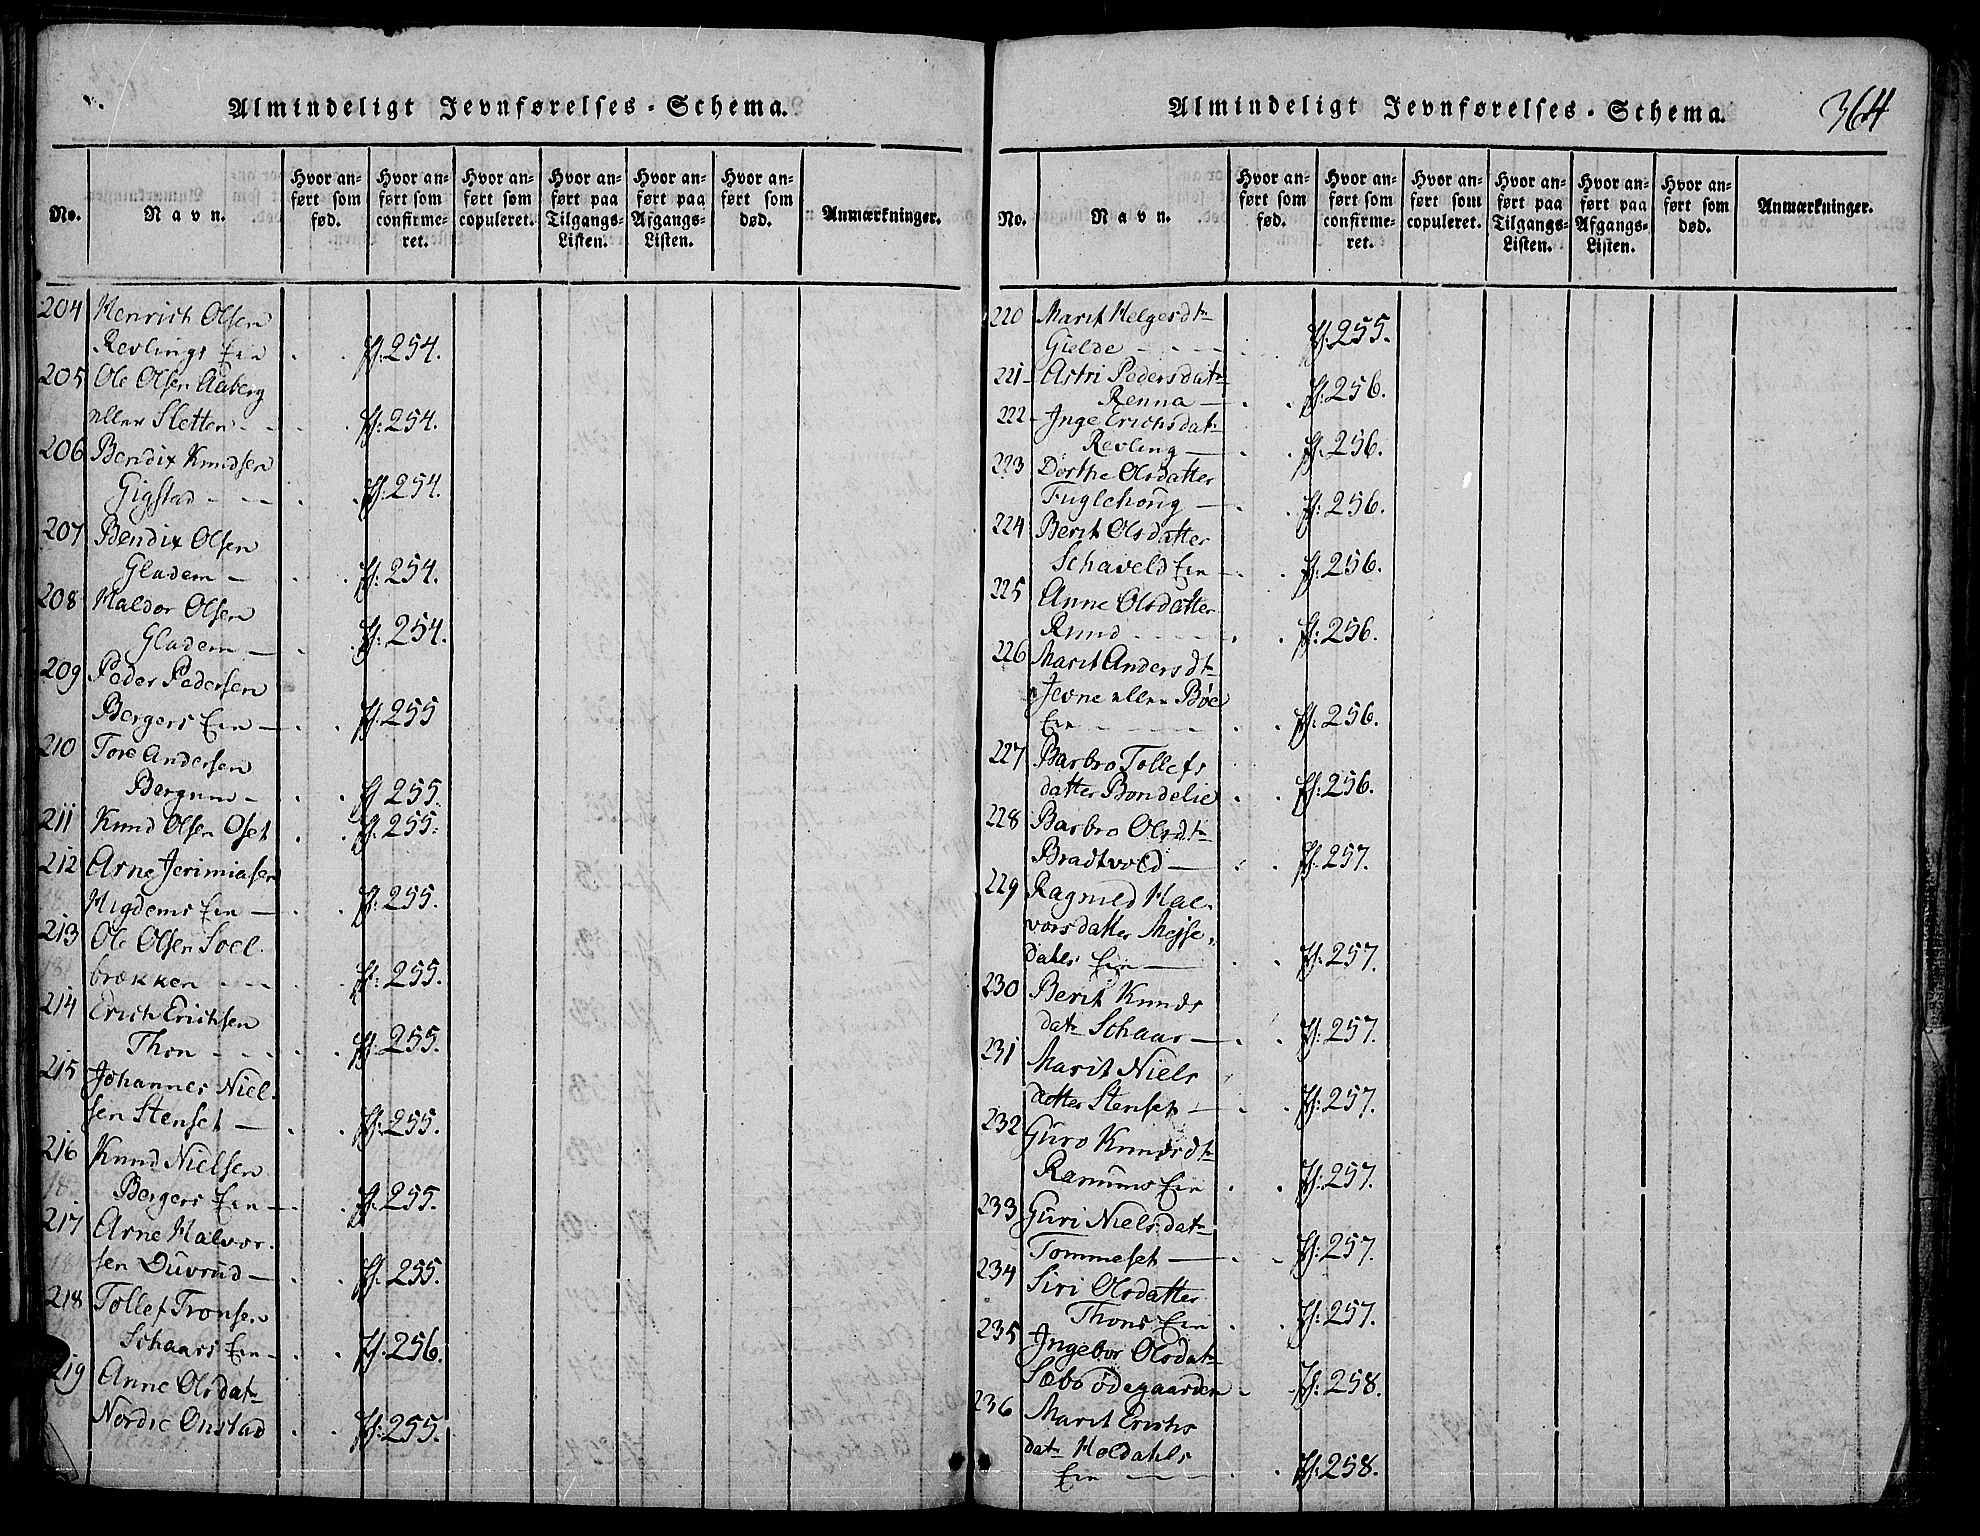 Almindeligt Jevnførelses-Schema.
No.
Navn.
Hvor an-
ført som
fød.
Hvor an-
ført som
confirme-
ret.
Hvor an-
ført som
copuleret.
Hvor an-
ført paa
Tilgangs-
Listen.
Hvor an-
ført paa
Afgangs-
Listen.
Hvor an-
ført som
død.
Anmærkninger.
204 Henrich Olsen
Revlings Eie ff: 254.
205 Ole Olsen Aaberg
eller Sletten ff: 254.
206 Bendix Knudsen
Gigstad ff: 254.
207 Bendix Olsen
Gladem ff: 254.
208 Haldor Olsen
Gladem ff: 254.
209 Peder Pedersen
Bergers Eie ff: 255
210 Tore Andersen
Bergum ff 255.
211 Knud Olsen Oset ff. 255.
212 Arne Jerimiasen
Higdems Eie ff: 255.
213 Ole Olsen Soel-
brækken ff: 255.
214 Erich Erichsen
Thon ff: 255.
215 Johannes Niel-
sen Stenset ff: 255.
216 Knud Nielsen
Bergers Eie ff: 255.
217 Arne Halvor-
sen Duvrud ff: 255.
218 Tollef Tronsen
Schaars Eie ff: 256.
219 Anne Olsdatr
Nordre Onstad ff: 255.
Almindeligt Jevnførelses-Schema.
364
No.
Navn.
Hvor an-
ført som
fød.
Hvor an-
ført som
confirme-
ret.
Hvor an-
ført som
copuleret.
Hvor an-
ført paa
Tilgangs-
Listen.
Hvor an-
ført paa
Afgangs-
Listen.
Hvor an-
ført som
død.
Anmærkninger.
220 Marit Helgesdtr
Gielde ff: 255.
221 Astri Pedersdatr
Renna ff: 256.
222 Inge Erichsdatr
Revling ff. 256.
223 Dorthe Olsdatter
Fuglehoug ff: 256.
224 Berit Olsdatter
Schaveld Eie ff: 256.
225 Anne Olsdatter
Ruud ff: 256.
226 Marit Andersdtr
Jevne eller Bøe
Eie ff: 256.
227 Barbro Tollefs
datter Bondelie ff: 256.
228 Barbro Olsdtr
Bradtvold ff: 257.
229 Ragnild Hal-
vorsdatter Mejse-
dahls Eie ff: 257.
230 Berit Knuds
datr Schaar ff: 257.
231 Marit Niels
datter Stenset ff: 257.
232 Guro Knudsdtr
Ramums Eie ff: 257.
233 Guri Nielsdatr
Tommeset ff: 257.
234 Siri Olsdatter
Thons Eie ff: 257.
235 Ingebor Olsdatr
Sæbo ödegaarden ff: 258.
236 Marit Erichs
datr Holdahls
Eie ff: 258.